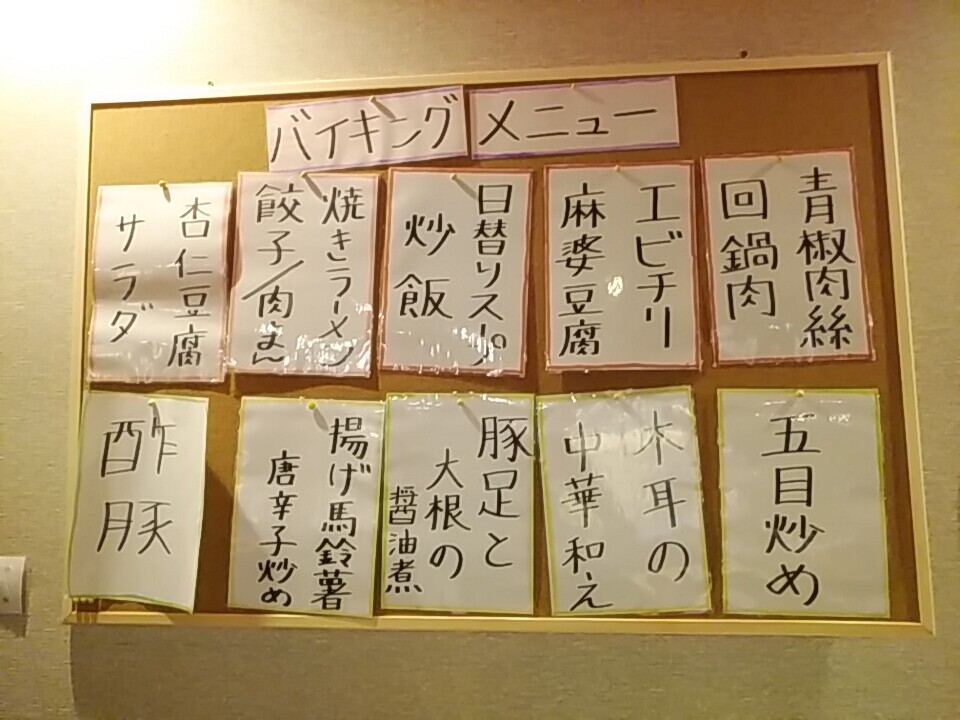 バイキングメニュー
青椒肉絲
回鍋肉
エビチリ
麻婆豆腐
日替りスープ
炒飯
焼きラーメン
餃子/肉まん
杏仁豆腐
サラダ
五目炒め
木耳の
中華和え
豚足と
大根の
醤油煮
揚げ馬鈴薯
唐辛子炒め
酢豚